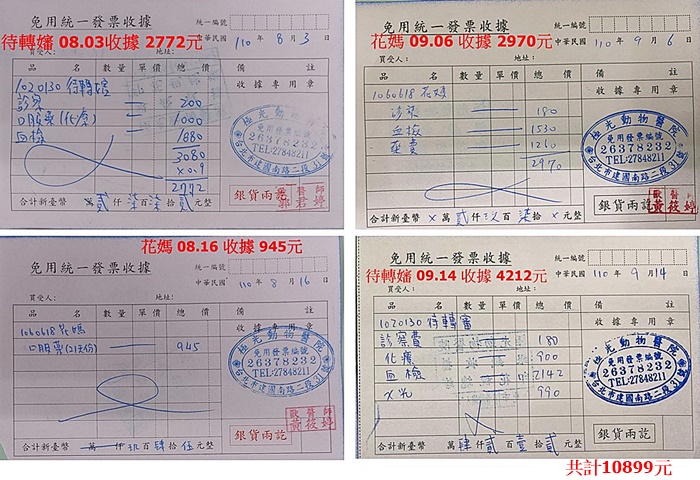 免用統一發票收據
待轉嬸 08.03收據 2772元
統一編號
中華民國 110 年 8 月 3 日
買受人: 地址:
品名 數量 單價 總價 備註
收據專用章
1020130 待轉嬸
診察 200
口服藥(化療) 1000
血檢 1880
3080
x0.9
2772
極光動物醫院
免用發票編號
26378232
TEL:27848211
台北市建國南路二段31號
銀貨兩訖
醫師
郭君婷
合計新臺幣 萬貳仟柒百柒拾貳元整
免用統一發票收據
花媽 09.06 收據 2970元
統一編號
中華民國 110 年 9 月 6 日
買受人: 地址:
品名 數量 單價 總價 備註
收據專用章
1060618 花媽
診察 180
血檢 1530
藥費 1260
2970
極光動物醫院
免用發票編號
26378232
TEL:27848211
台北市建國南路二段31號
銀貨兩訖
獸醫師
黃筱婷
合計新臺幣 x 萬貳仟玖百柒拾 x 元整
花媽 08.16 收據 945元
免用統一發票收據
統一編號
中華民國 110 年 8 月 16 日
買受人: 地址:
品名 數量 單價 總價 備註
收據專用章
1060618 花媽
口服藥(21天份) 945
極光動物醫院
免用發票編號
26378232
TEL:27848211
台北市建國南路二段31號
銀貨兩訖
獸醫師
黃筱婷
合計新臺幣 萬仟玖百肆拾伍元整
免用統一發票收據
待轉嬸 09.14 收據 4212元
統一編號
中華民國 110 年 9 月 14 日
買受人: 地址:
品名 數量 單價 總價 備註
收據專用章
1020130 待轉嬸
診察費 180
化療 900
血檢 2142
X光 990
極光動物醫院
免用發票編號
26378232
TEL:27848211
台北市建國南路二段31號
銀貨兩訖
合計新臺幣 萬肆仟貳百壹拾貳元整
共計10899元